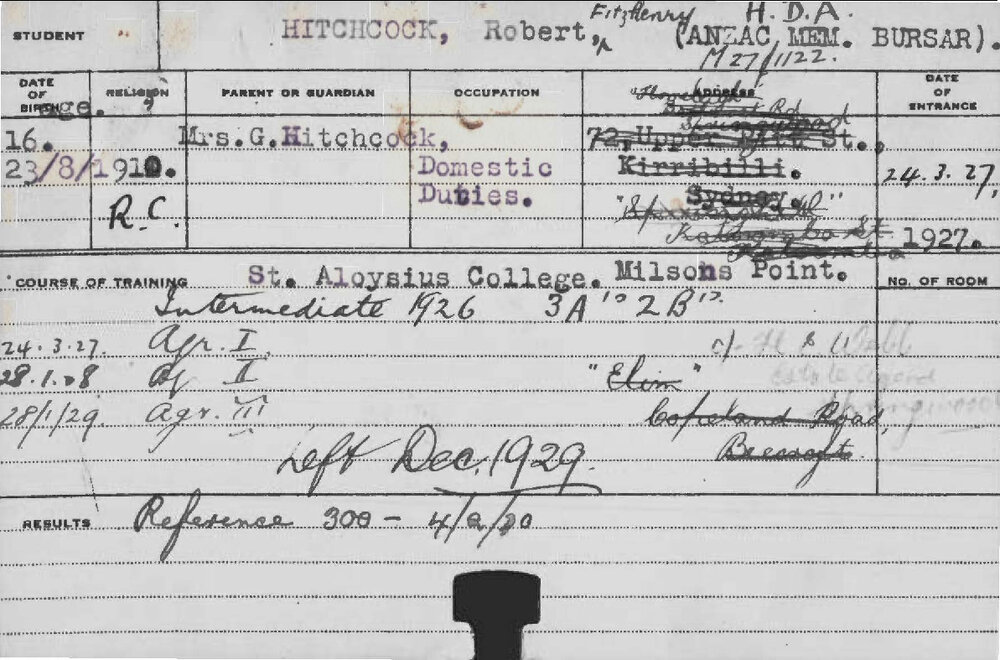 FitzHenry H. D. A.
STUDENT HITCHCOCK, Robert, (ANZAC MEM. BURSAR).
M27/1122.
DATE OF BIRTH Age. RELIGION PARENT OR GUARDIAN OCCUPATION ADDRESS DATE OF ENTRANCE
16. Mrs.G.Hitchcock, 72, Upper Pitt St.,
23/8/1910. Domestic Kirribilli. 24.3.27,
R.C. Duties. Sydney.
1927.
COURSE OF TRAINING St. Aloysius College. Milsons Point. NO. OF ROOM
Intermediate 1926 3A's 2B's.
24.3.27. Agr. I c/- H E Webb
28.1.28 Ag II "Elim" Estate Agent
28/1/29. Agr. III Copeland Road,
Left Dec. 1929. Beecroft.
RESULTS Reference 300 - 4/2/30